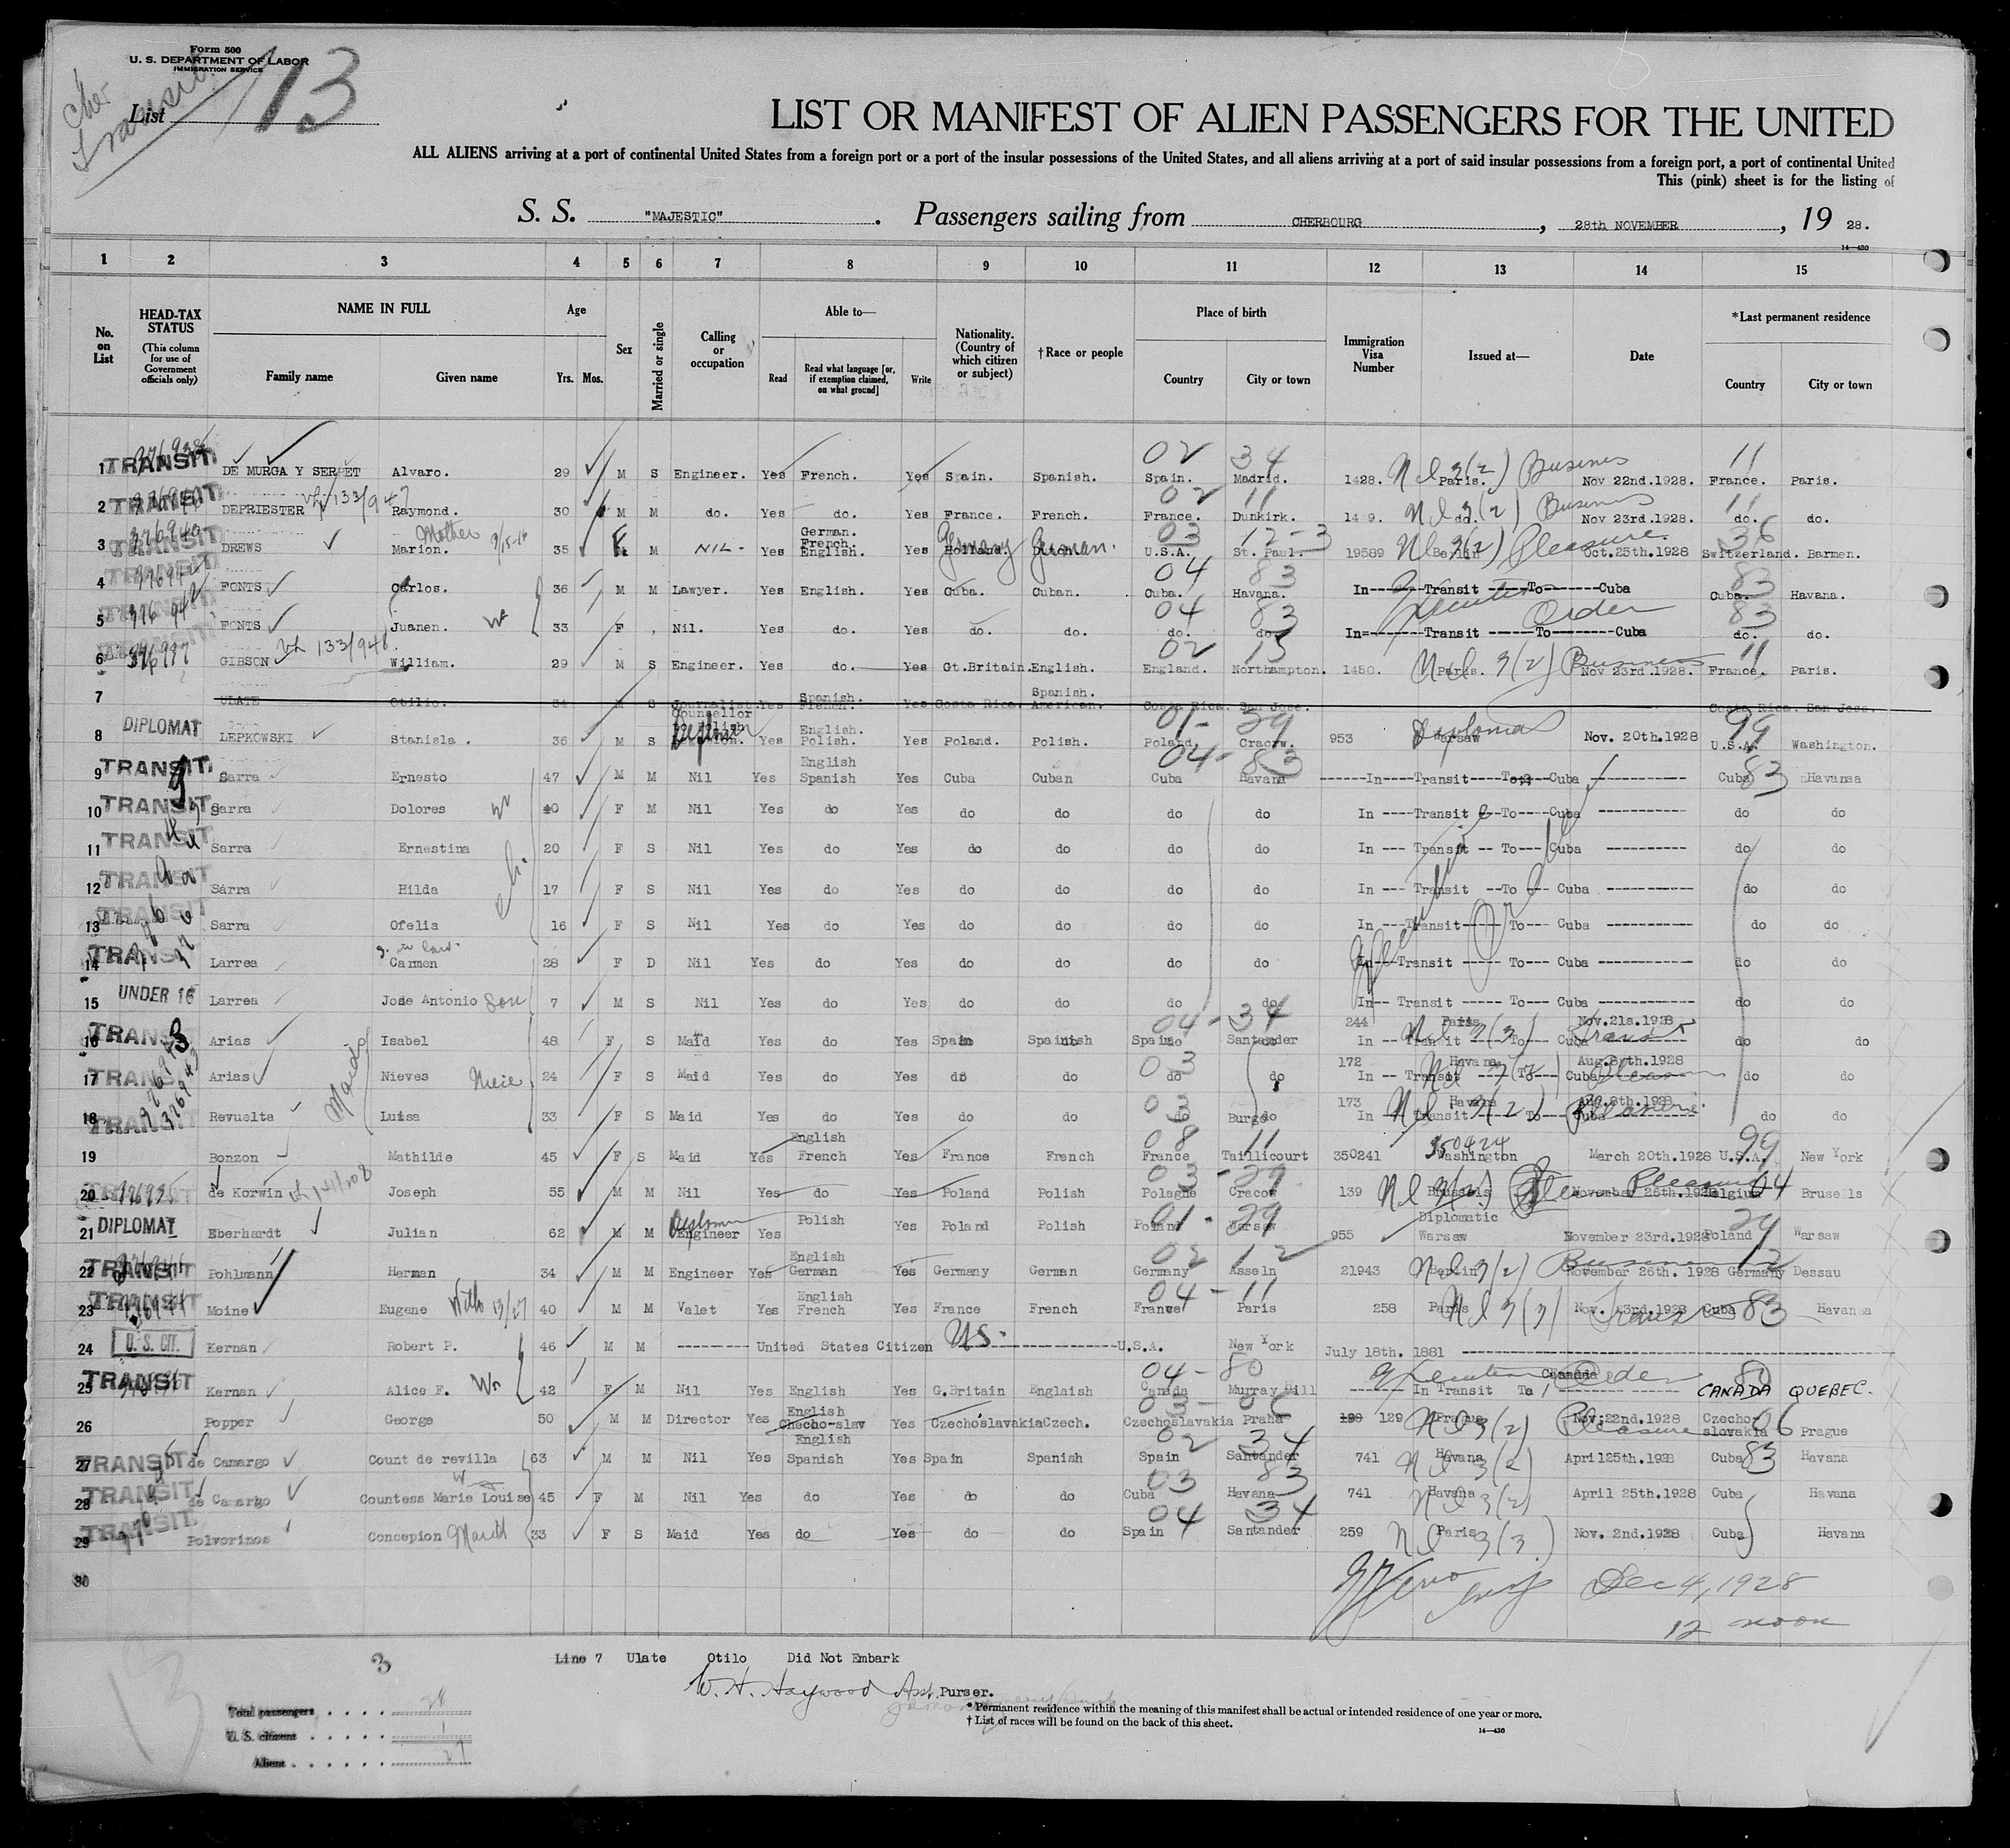 Form 500
U. S. DEPARTMENT OF LABOR
IMMIGRATION SERVICE
List 13
LIST OR MANIFEST OF ALIEN PASSENGERS FOR THE UNITED
ALL ALIENS arriving at a port of continental United States from a foreign port or a port of the insular possessions of the United States, and all aliens arriving at a port of said insular possessions from a foreign port, a port of continental United
This (pink) sheet is for the listing of
S. S. "MAJESTIC". Passengers sailing from CHERBOURG, 28th NOVEMBER, 19 28.
14—430
1 2 3 4 5 6 7 8 9 10 11 12 13 14 15
No. on List
HEAD-TAX STATUS (This column for use of Government officials only)
NAME IN FULL
Family name Given name
Age Yrs. Mos.
Sex
Married or single
Calling or occupation
Able to— Read Read what language [or, if exemption claimed, on what ground] Write
Nationality. (Country of which citizen or subject)
†Race or people
Place of birth Country City or town
Immigration Visa Number
Issued at—
Date
*Last permanent residence Country City or town
1 TRANSIT DE MURGA Y SERRET Alvaro. 29 M S Engineer. Yes French. Yes Spain. Spanish. 02 34 Spain. Madrid. 1428. Paris. 3(2) Business Nov 22nd.1928. 11 France. Paris.
2 TRANSIT DEPRIESTER Raymond. 30 M M do. Yes do. Yes France. French. 02 11 France. Dunkirk. 1449. do. 3(2) Business Nov 23rd.1928. 11 do. do.
3 TRANSIT DREWS Marion. Mother 35 F M NIL- Yes German. French. English. Yes Holland. Germany Dutch. German. 03 12-3 U.S.A. St. Paul. 19589 Berlin 3(2) Pleasure Oct.25th.1928 Switzerland. Barmen.
4 TRANSIT FONTS Carlos. 36 M M Lawyer. Yes English. Yes Cuba. Cuban. 04 83 Cuba. Havana. In---Transit---To---Cuba 83 Cuba. Havana.
5 TRANSIT FONTS Juanen. W 33 F Nil. Yes do. Yes do. do. 04 83 do. do. In---Transit---To---Cuba Executive Order 83 do. do.
6 GIBSON William. 29 M S Engineer. Yes do. Yes Gt.Britain. English. 02 15 England. Northampton. 1450. Paris. 3(2) Business Nov 23rd.1928. 11 France. Paris.
7 ULATE Otilio. 34 M S Journalist. Yes Spanish. French. Yes Costa Rica. Spanish. American. Costa Rica. San Jose. Costa Rica. San Jose.
8 DIPLOMAT LEPKOWSKI Stanisla . 36 M S Counsellor Yes English. Polish. Yes Poland. Polish. 01-29 Poland. Cracow. 953 Warsaw Diplomat Nov. 20th.1928 99 U.S.A. Washington.
9 TRANSIT Sarra Ernesto 47 M M Nil Yes English Spanish Yes Cuba Cuban 04-83 Cuba Havana ------In----Transit----To----Cuba ------------ Cuba 83 Havansa
10 TRANSIT Sarra Dolores W 40 F M Nil Yes do Yes do do do do In ----Transit --To----Cuba ---------- do do
11 TRANSIT Sarra Ernestina 20 F S Nil Yes do Yes do do do do In --- Transit -- To--- Cuba ---------- do do
12 TRANSIT Sarra Hilda 17 F S Nil Yes do Yes do do do do In --- Transit --To --- Cuba ----------- do do
13 TRANSIT Sarra Ofelia 16 F S Nil Yes do Yes do do do do In ---Transit---- To--- Cuba ---------- do do
14 TRANSIT Larrea Carmen 28 F D Nil Yes do Yes do do do do In---Transit ----- To--- Cuba ----------- do do
15 UNDER 16 Larrea Jose Antonio Son 7 M S Nil Yes do Yes do do do do In-- Transit ----- To--- Cuba ----------- do do
16 TRANSIT Arias Isabel 48 F S Maid Yes do Yes Spain Spainish 04-34 Spain Santander 244 Paris 3(3) Nov.21s.1928 In -- Transit ---To--- Cuba do do
17 TRANSIT Arias Nieves Niece 24 F S Maid Yes do Yes do do 03 do do 172 Havana Aug.8th.1928 In -- Transit ----To--- Cuba do do
18 TRANSIT Revuelta Luisa 33 F S Maid Yes do Yes do do 03 do Burgo 173 Havana 3(2) Aug.8th.1928 In Transit To Cuba Pleasure do do
Maids
19 Bonzon Mathilde 45 F S Maid Yes English French Yes France French 08 11 France Taillicourt 350241 350424 Washington March 20th.1928 99 U.S.A. New York
20 TRANSIT de Korwin Joseph 55 M M Nil Yes do Yes Poland Polish 03-29 Polagne Cracow 139 Brussels Pleasure November 26th.1928 Belgium 04 Brusells
21 DIPLOMAT Eberhardt Julian 62 M M Diplomat Engineer Yes Polish Yes Poland Polish 01-29 Poland Warsaw 955 Diplomatic Warsaw November 23rd.1928 29 Poland Warsaw
22 TRANSIT Pohlmann Herman 34 M M Engineer Yes English German Yes Germany German 02 12 Germany Asseln 21943 Berlin 3(2) Business November 26th. 1928 12 Germany Dessau
23 TRANSIT Moine Eugene 40 M M Valet Yes English French Yes France French 04-11 France Paris 258 Paris 3(3) Nov. 23rd.1928 Cuba 83 Havana
24 U. S. CIT. Kernan Robert P. 46 M M --------- United States Citizen US. ------------U.S.A. New York July 18th. 1881
25 TRANSIT Kernan Alice F. W 42 F M Nil Yes English Yes G.Britain Englaish 04-80 Canada Murray Hill In Transit To Canada Executive Order 80 CANADA QUEBEC.
26 Popper George 50 M M Director Yes English Checho-slav Yes Czechoslavakia Czech. 03-06 Czechoslavakia Praha 129 Prague 3(2) Pleasure Nov.22nd.1928 Czecho slovakia 06 Prague
27 TRANSIT de Camargo Count de revilla 63 M M Nil Yes English Spanish Yes Spain Spanish 02 34 Spain Santander 741 Havana 3(2) April 25th.1928 Cuba 83 Havana
28 TRANSIT de Camargo Countess Marie Louise W 45 F M Nil Yes do Yes do do 03 83 Cuba Havana 741 Havana 3(2) April 25th.1928 Cuba Havana
29 TRANSIT Polvorinos Concepion Maid 33 F S Maid Yes do Yes do do 04 34 Spain Santander 259 Paris 3(3) Nov. 2nd.1928 Cuba Havana
30
Dec 4, 1928
12 noon
3
Line 7 Ulate Otilo Did Not Embark
W. H. Haywood Asst. Purser.
Total passengers . . . . . 28
U. S. citizens . . . . . 1
Aliens . . . . . . 27
* Permanent residence within the meaning of this manifest shall be actual or intended residence of one year or more.
† List of races will be found on the back of this sheet.
14—430